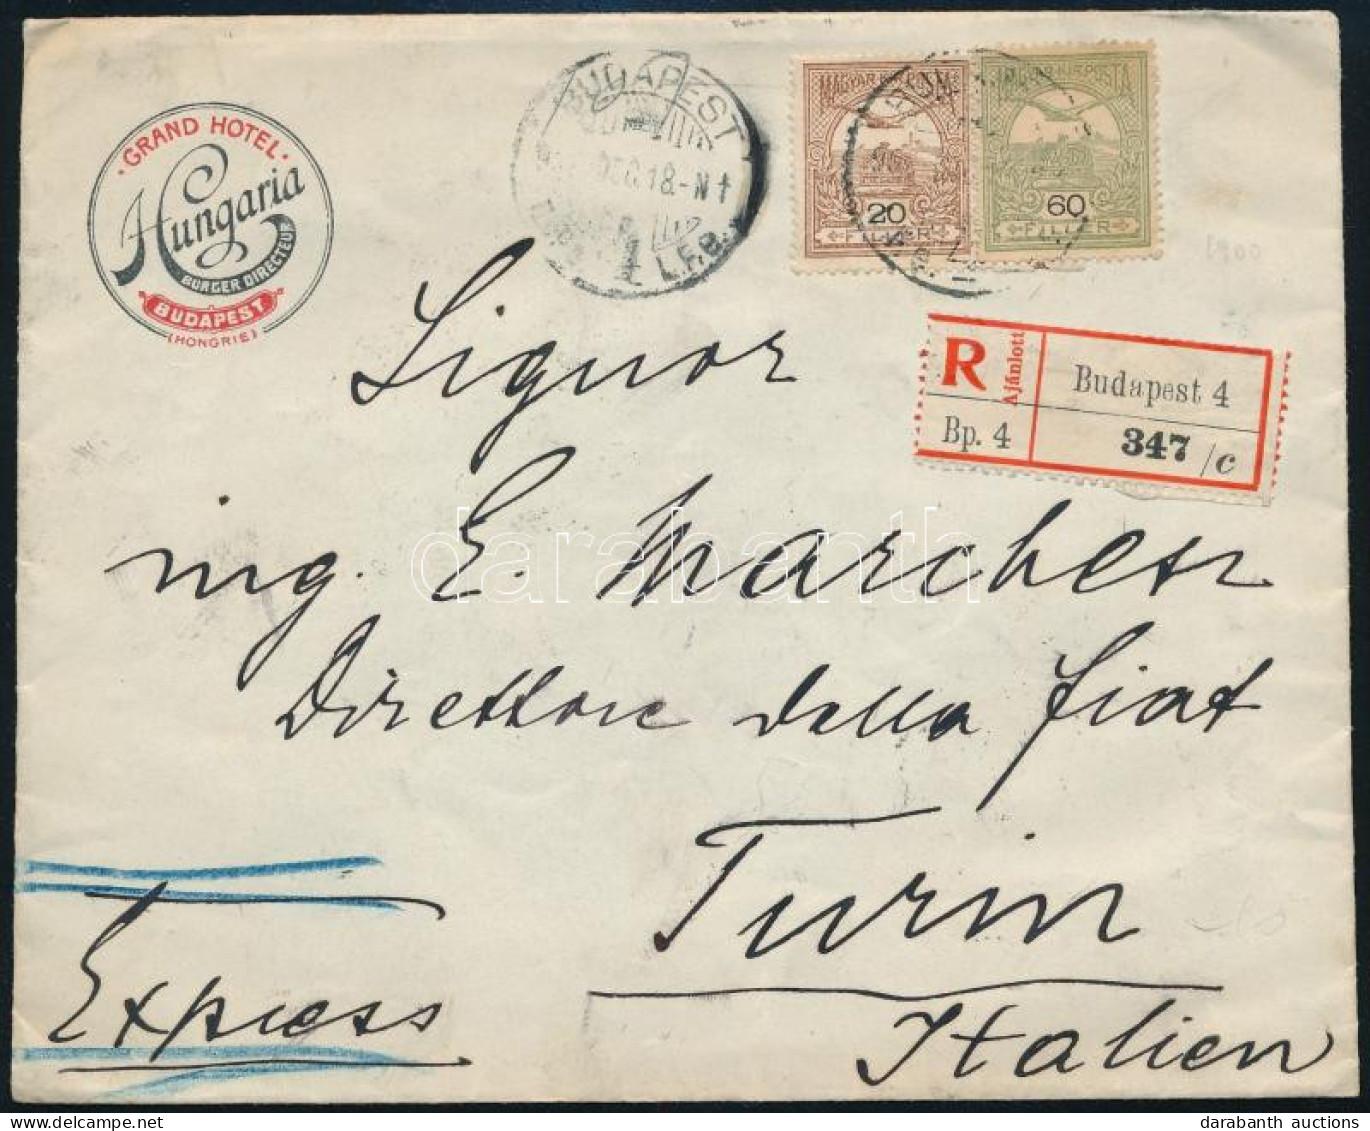 GRAND HOTEL
Hungaria
BURGER DIRECTEUR
BUDAPEST
(HONGRIE)
BUDAPEST
DEC. 18.-N 1
1 L.F.B.
MAGYAR KIR. POSTA
20
FILLÉR
60
FILLÉR
R
Ajánlott
Budapest 4
Bp. 4
347/c
Signor
ing. E. Marchesi
Direttore della Fiat
Turin
Italien
Express
darabanth
darabanth auctions